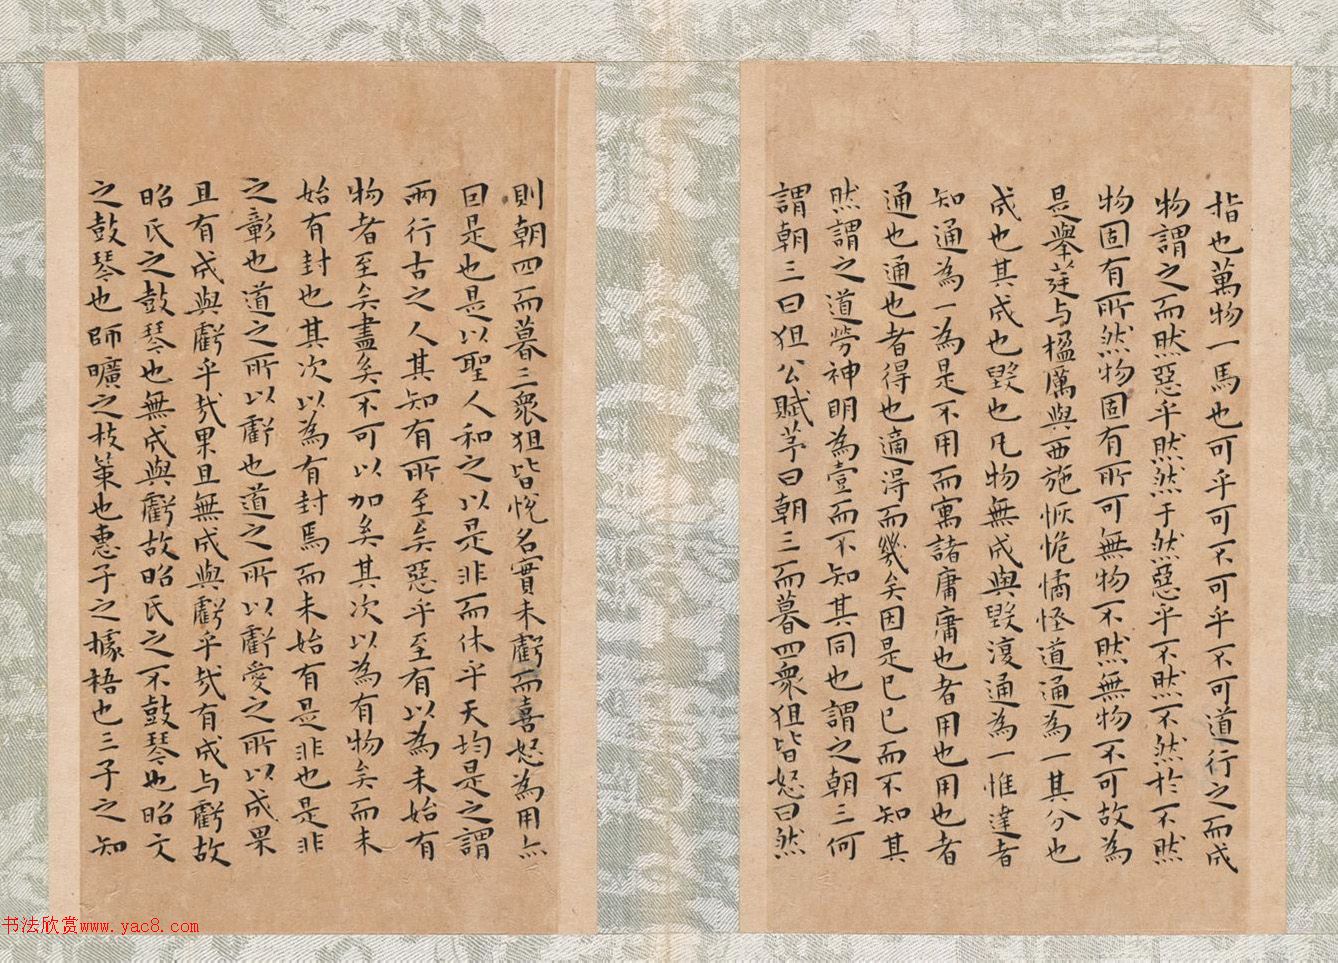 指也萬物一馬也可乎可不可乎不可道行之而成
物謂之而然惡乎然然于然惡乎不然不然於不然
物固有所然物固有所可無物不然無物不可故為
是舉莛与楹厲與西施恢恑憰怪道通為一其分也
成也其成也毀也凡物無成與毀復通為一惟達者
知通為一為是不用而寓諸庸庸也者用也用也者
通也通也者得也適得而幾矣因是已已而不知其
然謂之道勞神明為壹而不知其同也謂之朝三何
謂朝三曰狙公賦芧曰朝三而暮四衆狙皆怒曰然
則朝四而暮三衆狙皆悅名實未虧而喜怒為用亦
因是也是以聖人和之以是非而休乎天均是之謂
兩行古之人其知有所至矣惡乎至有以為未始有
物者至矣盡矣不可以加矣其次以為有物矣而未
始有封也其次以為有封焉而未始有是非也是非
之彰也道之所以虧也道之所以虧愛之所以成果
且有成與虧乎哉果且無成與虧乎哉有成与虧故
昭氏之鼓琴也無成與虧故昭氏之不鼓琴也昭文
之鼓琴也師曠之枝策也惠子之據梧也三子之知
书法欣赏www.yac8.com